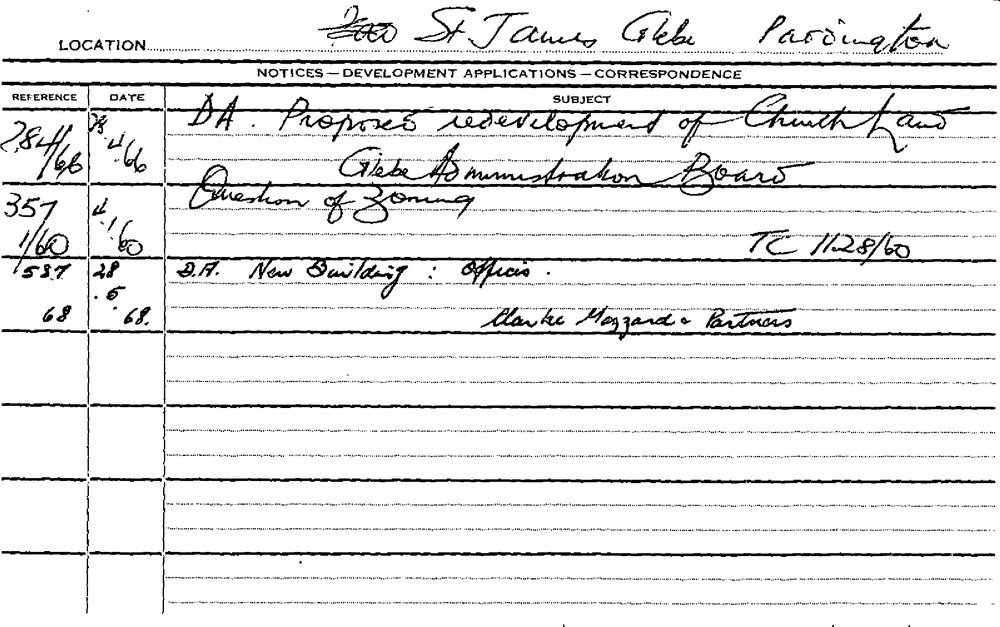 LOCATION St James Glebe Paddington
NOTICES — DEVELOPMENT APPLICATIONS — CORRESPONDENCE
REFERENCE DATE SUBJECT
284/66 4.66 DA. Proposed redevelopment of Church Land
Glebe Administration Board
357 4 Question of Zoning
1/60 1/60 TC 1128/60
537 28 D.A. New Building : Offices.
.5
68 68. Clarke Gazzard & Partners